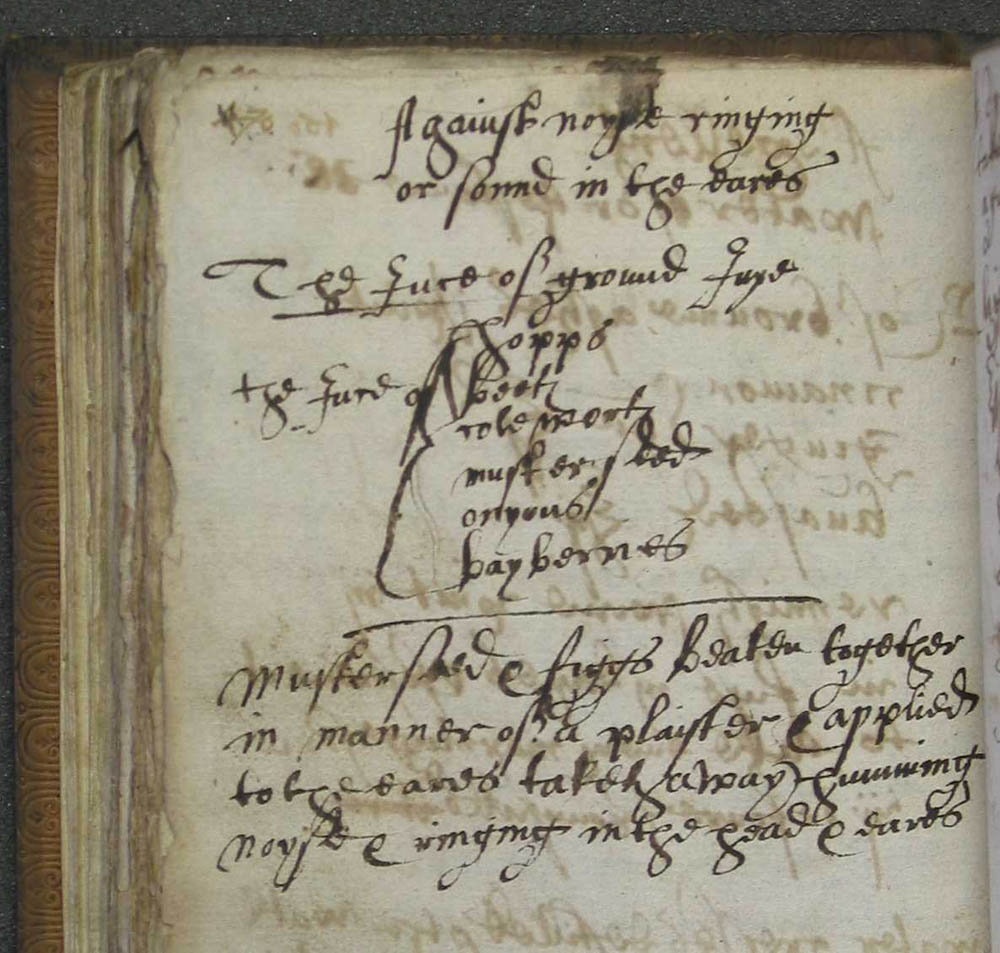 Against noyse ringing
or sound in the eares
The Juce of ground Juye
hopps
the Juce of beetz
colewortz
musterseed
onyons
bayberries
Musterseed & figgs beaten together
in manner of a plaister & applied
to the eares taketh away humming
noyse & ringing in the head & eares